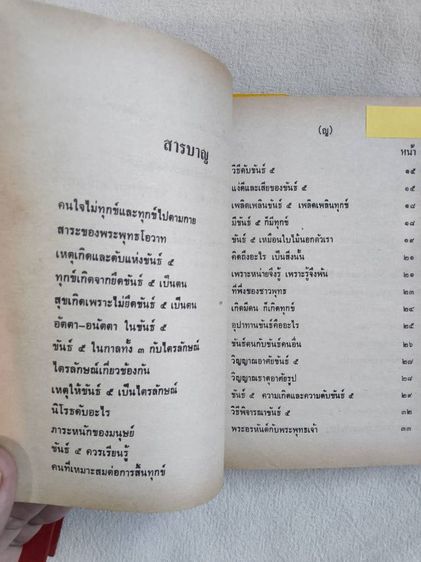 สารบาญ
คนใจไม่ทุกข์และทุกข์ไปตามกาย
สาระของพระพุทธโอวาท
เหตุเกิดและดับแห่งขันธ์ ๕
ทุกข์เกิดจากยึดขันธ์ ๕ เป็นตน
สุขเกิดเพราะไม่ยึดขันธ์ ๕ เป็นตน
อัตตา-อนัตตา ในขันธ์ ๕
ขันธ์ ๕ ในกาลทั้ง ๓ กับไตรลักษณ์
ไตรลักษณ์เกี่ยวข้องกัน
เหตุให้ขันธ์ ๕ เป็นไตรลักษณ์
นิโรธดับอะไร
ภาระหนักของมนุษย์
ขันธ์ ๕ ควรเรียนรู้
คนที่เหมาะสมต่อการสิ้นทุกข์
(ญ)
หน้า
วิธีดับขันธ์ ๕ ๑๕
แง่ดีและเสียของขันธ์ ๕ ๑๕
เพลิดเพลินขันธ์ ๕ เพลิดเพลินทุกข์ ๑๘
มีขันธ์ ๕ ก็มีทุกข์ ๑๘
ขันธ์ ๕ เหมือนใบไม้นอกตัวเรา ๑๙
คิดถึงอะไร เป็นสิ่งนั้น ๒๑
เพราะหน่ายจึงรู้ เพราะรู้จึงพ้น ๒๑
ที่พึ่งของชาวพุทธ ๒๓
เกิดมีตน ก็เกิดทุกข์ ๒๔
อุปาทานขันธ์คืออะไร ๒๕
ขันธ์ตนกับขันธ์คนอื่น ๒๖
วิญญาณอาศัยขันธ์ ๒๗
วิญญาณธาตุอาศัยรูป ๒๘
ขันธ์ ๕ ความเกิดและความดับขันธ์ ๕ ๒๙
วิธีพิจารณาขันธ์ ๕ ๓๒
พระอรหันต์กับพระพุทธเจ้า ๓๓